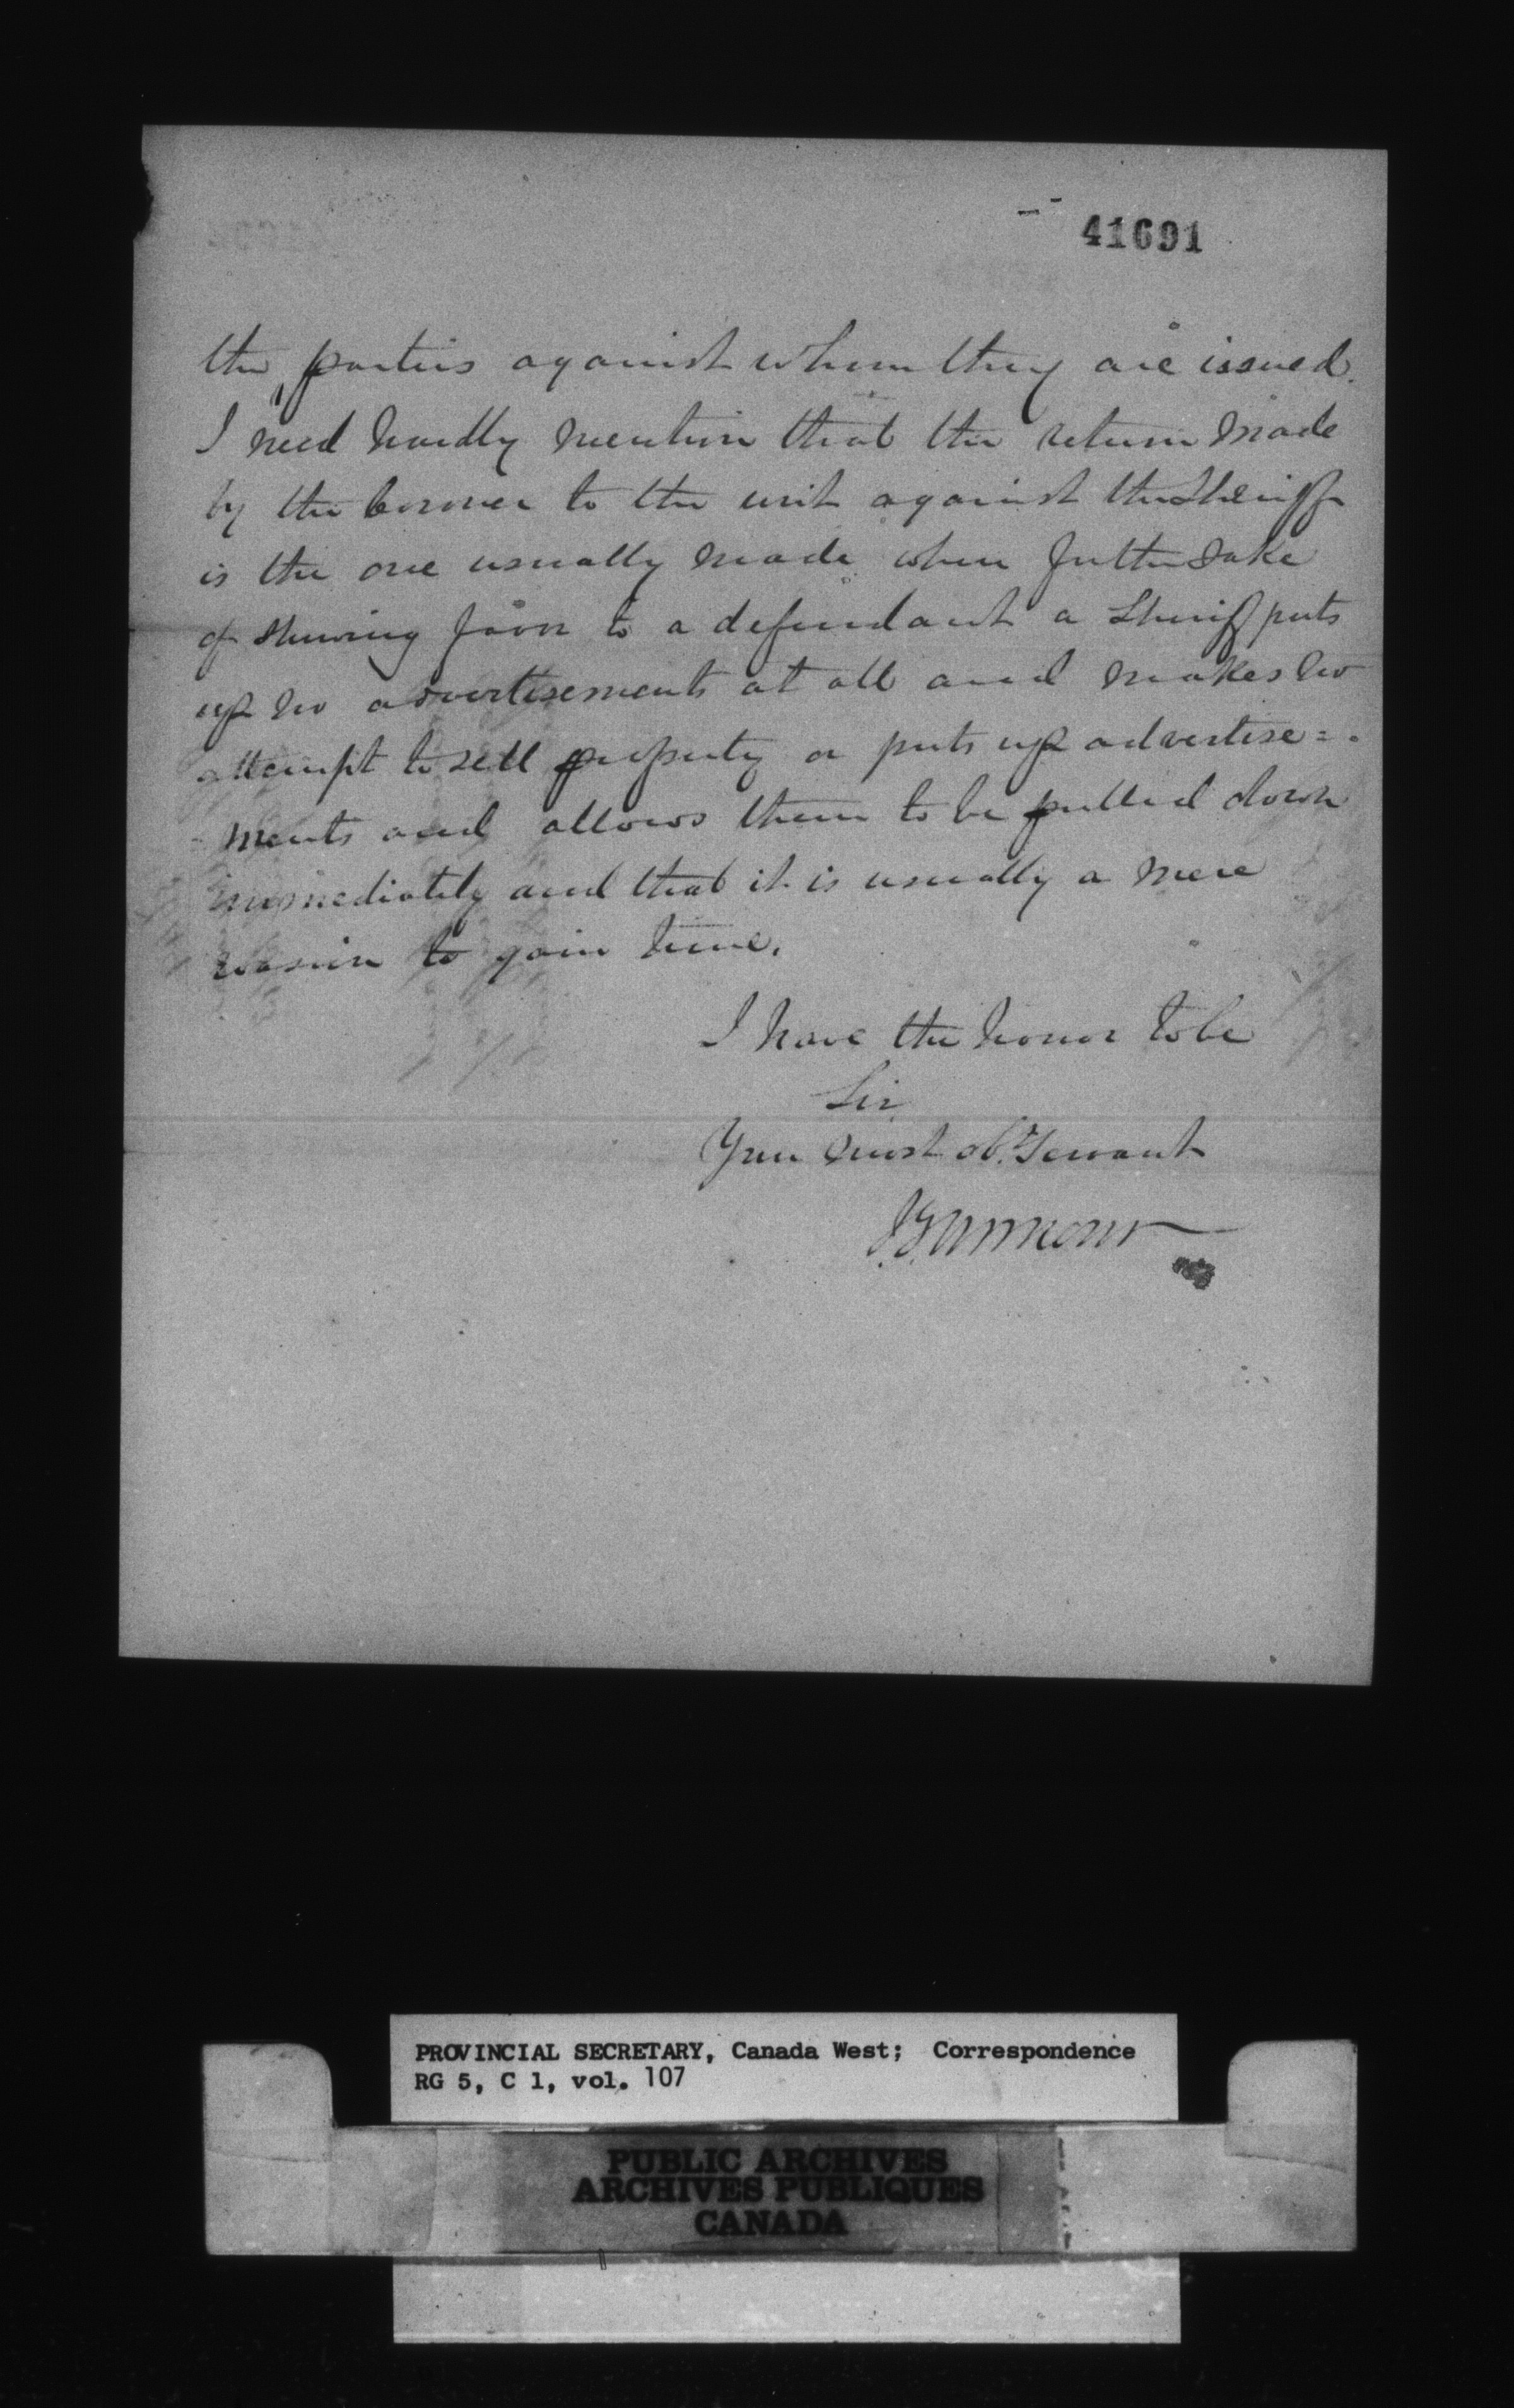 41691
the parties against whom they are issued.
I need hardly mention that the return made
by the Coroner to the writ against the Sheriff
is the one usually made when for the sake
of shewing favor to a defendant a Sheriff puts
up no advertisements at all and makes no
attempt to sell property or puts up advertise=
ments and allows them to be pulled down
immediately and that it is usually a mere
evasion to gain time.
I have the honor to be
Sir
Your most obt Servant
PROVINCIAL SECRETARY, Canada West; Correspondence
RG 5, C 1, vol. 107
PUBLIC ARCHIVES
ARCHIVES PUBLIQUES
CANADA